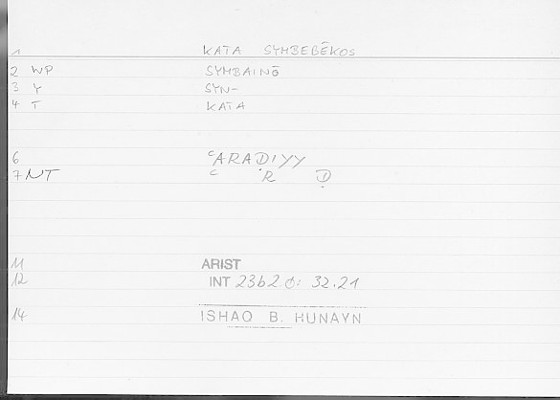 1 KATA SYMBEBĒKOS
2 WP SYMBAINŌ
3 Y SYN-
4 T KATA
6 ʿARAḌIYY
7 NT ʿ R Ḍ
11 ARIST
12 INT 23b2 : 32.21
14 ISHAQ B. HUNAYN